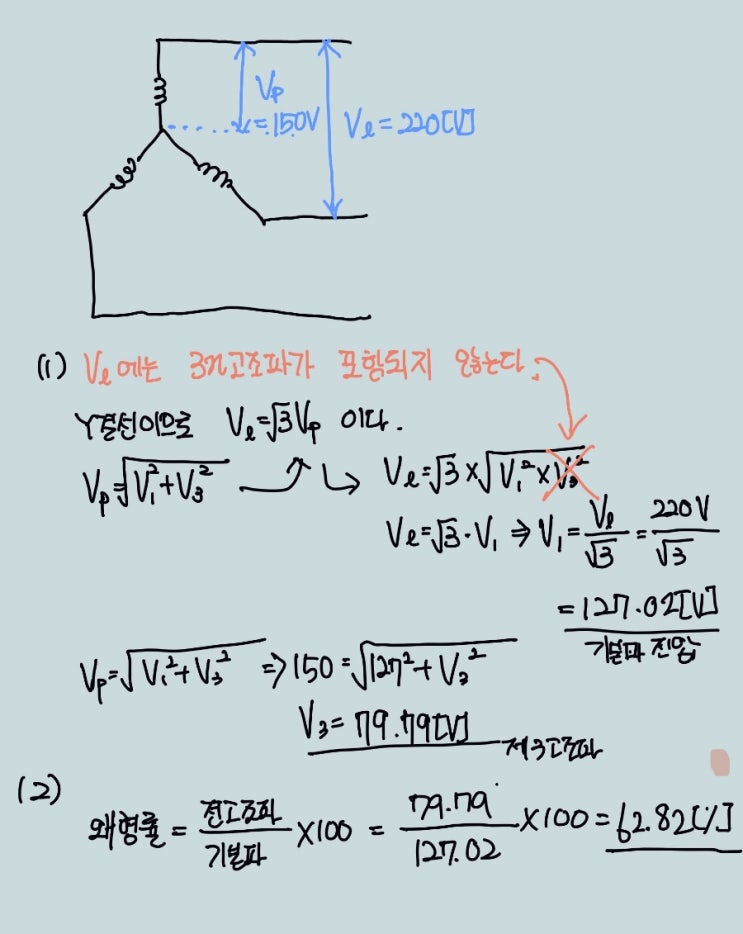 Vp
=150V
Vℓ=220[V]
(1) Vℓ에는 3n고조파가 포함되지 않는다.
Y결선이므로 Vℓ=√3Vp 이다.
Vp=√(V₁²+V₃²) → Vℓ=√3×√(V₁²×V₃²)
Vℓ=√3·V₁ ⇒ V₁=Vℓ/√3=220V/√3
=127.02[V]
기본파 전압
Vp=√(V₁²+V₃²) ⇒ 150=√(127²+V₃²)
V₃=79.79[V]
제3고조파
(2)
왜형률 = 전고조파/기본파 ×100 = 79.79/127.02 ×100 = 62.82[%]